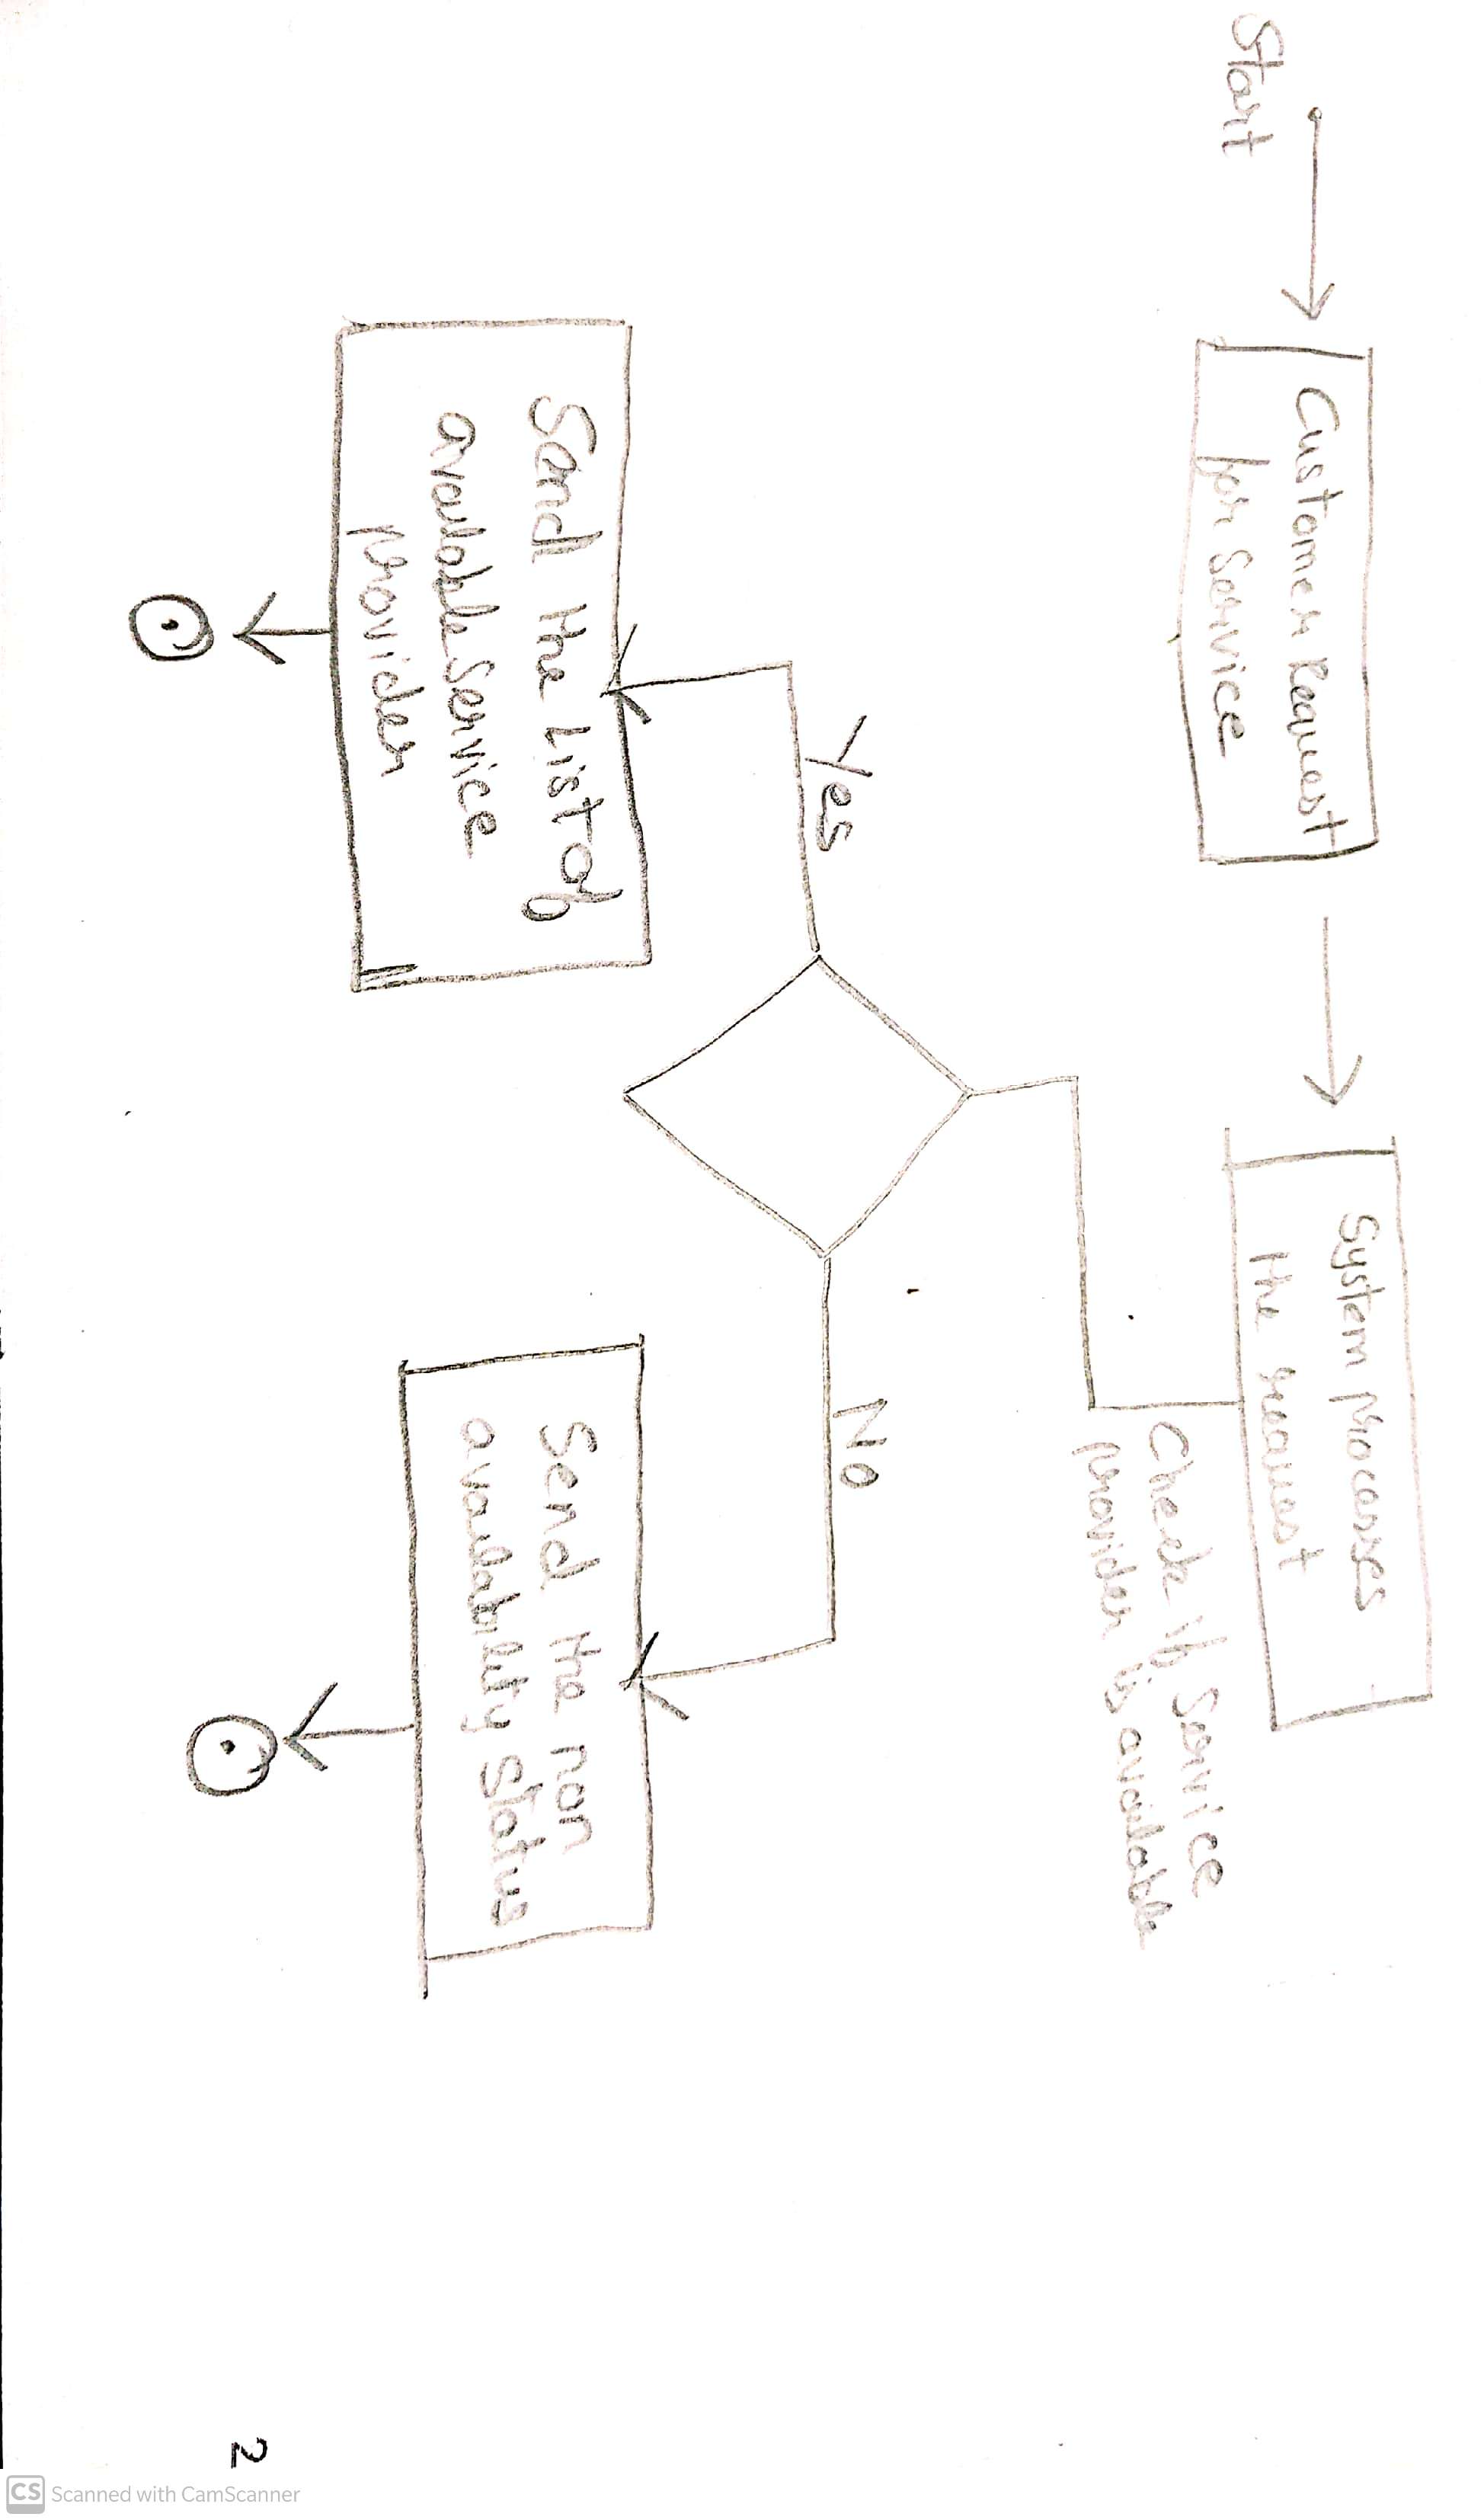 Start
Customer Request
for Service
System processes
the request
Check if Service
provider is available
Yes
No
Send the List of
available Service
provider
Send the non
availability Status
2
CS Scanned with CamScanner